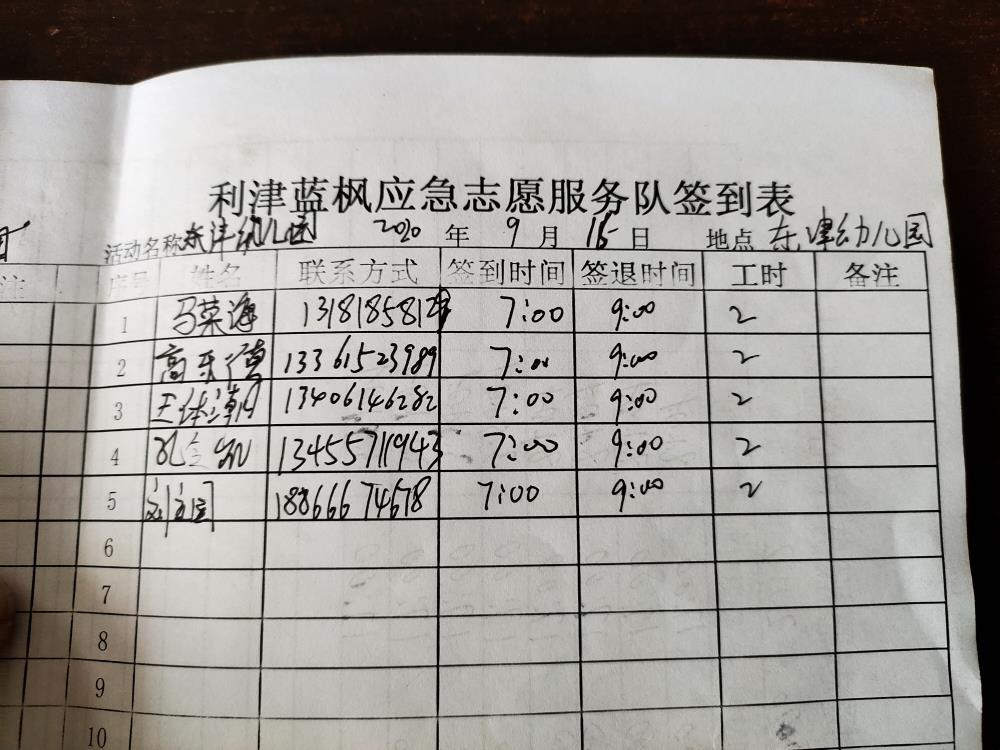 利津蓝枫应急志愿服务队签到表
活动名称 东津幼儿园 2020 年 9 月 15 日 地点 东津幼儿园
注 序号 姓名 联系方式 签到时间 签退时间 工时 备注
1 马荣海 7:00 9:00 2
2 高乐德 13361523989 7:00 9:00 2
3 王体潮 13406146282 7:00 9:00 2
4 13455711943 7:00 9:00 2
5 18866674678 7:00 9:00 2
6
7
8
9
10